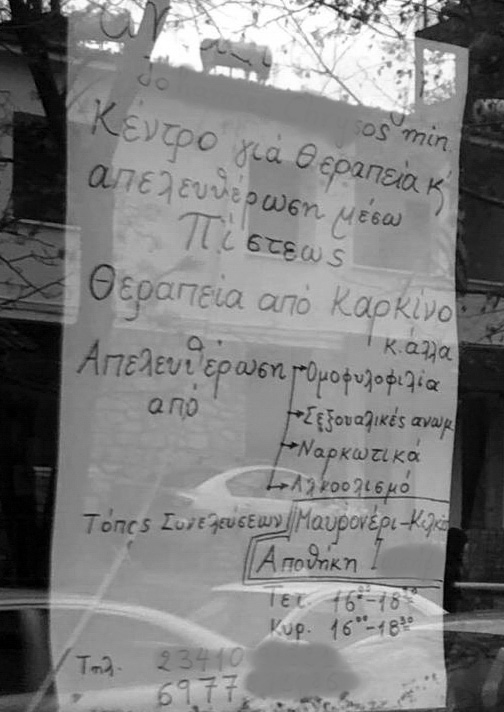 sos min
Κέντρο γιά Θεραπεία κ'
απελευθέρωση μέσω
Πίστεως
Θεραπεία από Καρκίνο
κ. άλλα
Απελευθέρωση → Ομοφυλοφιλία
από → Σεξουαλικές ανωμ
→ Ναρκωτικά
→ Αλκοολισμό
Τόπος Συνελεύσεων Μαυρονέρι-Κιλκίς
Αποθήκη 1
Τετ. 16⁰⁰-18³⁰
Κυρ. 16⁰⁰-18³⁰
Τηλ. 23410
6977